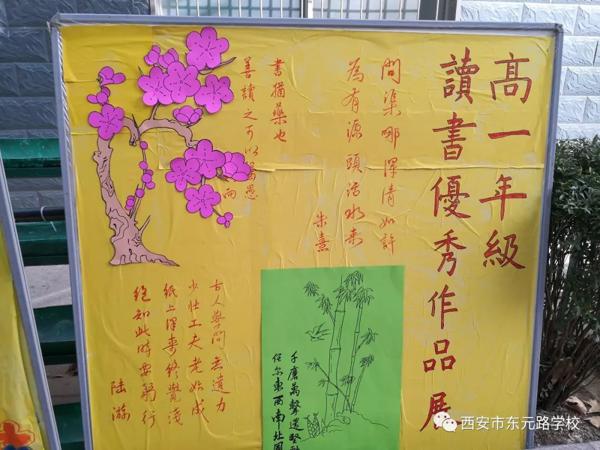 高一年級
讀書優秀作品展
問渠哪得清如許
為有源頭活水來
朱熹
書猶藥也
善讀之可以醫愚
古人學問无遺力
少壯工夫老始成
紙上得來終覺淺
絕知此時要躬行
陸游
千磨萬擊還堅勁
任尔東西南北風
西安市东元路学校